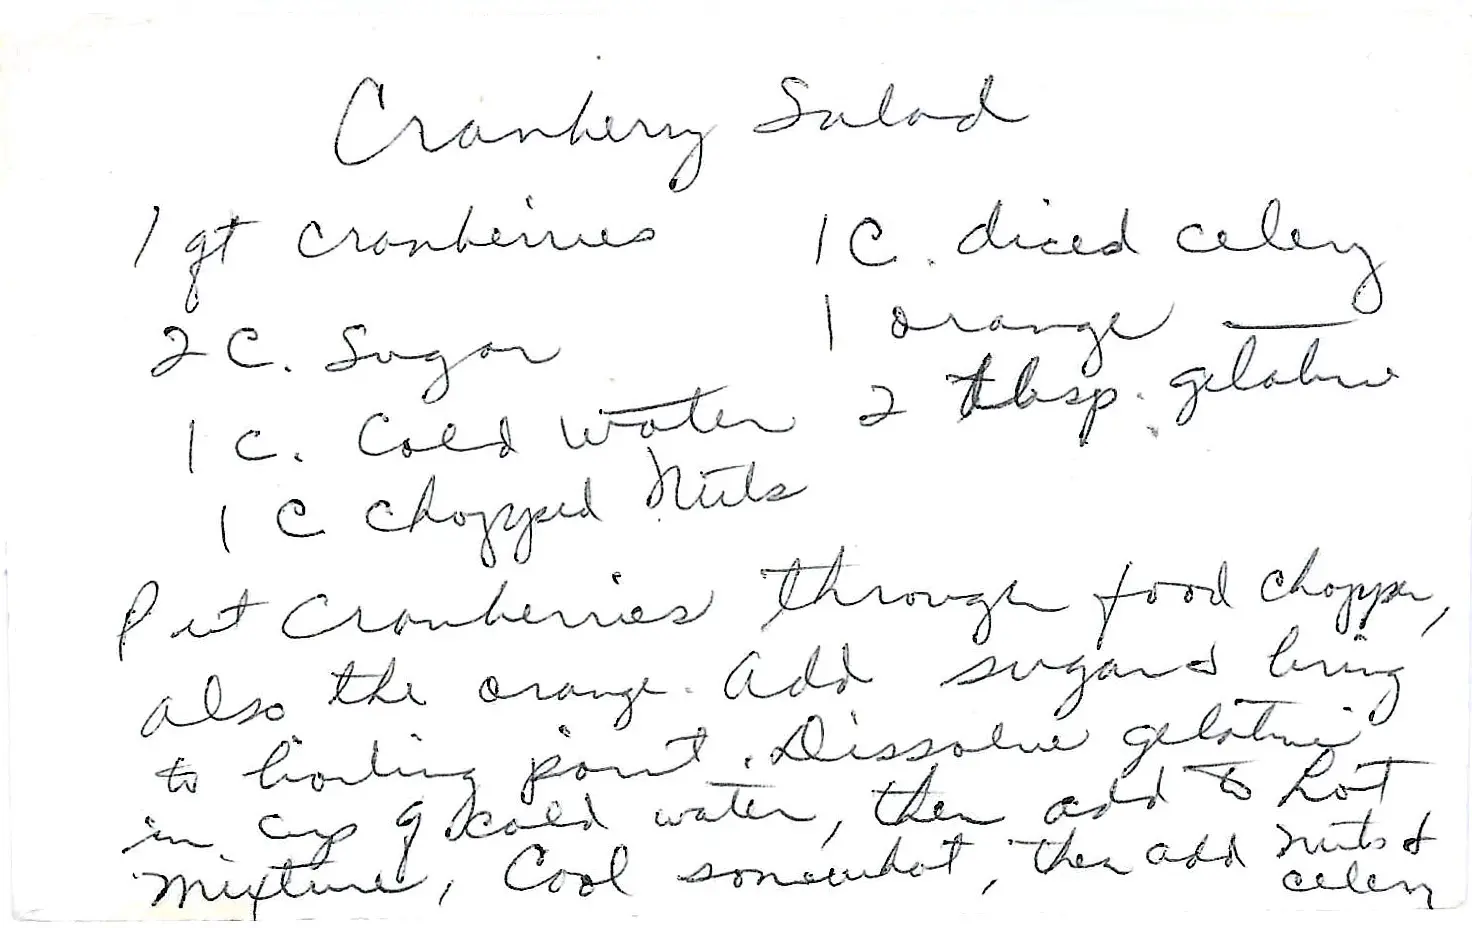 Cranberry Salad
1 qt cranberries
1 C. diced celery
2 C. Sugar
1 orange —
1 C. Cold water
2 tbsp. gelatine
1 C chopped Nuts
Put Cranberries through food chopper,
also the orange. Add sugar & bring
to boiling point. Dissolve gelatine
in cup of cold water, then add to hot
mixture, Cool somewhat, then add nuts &
celery